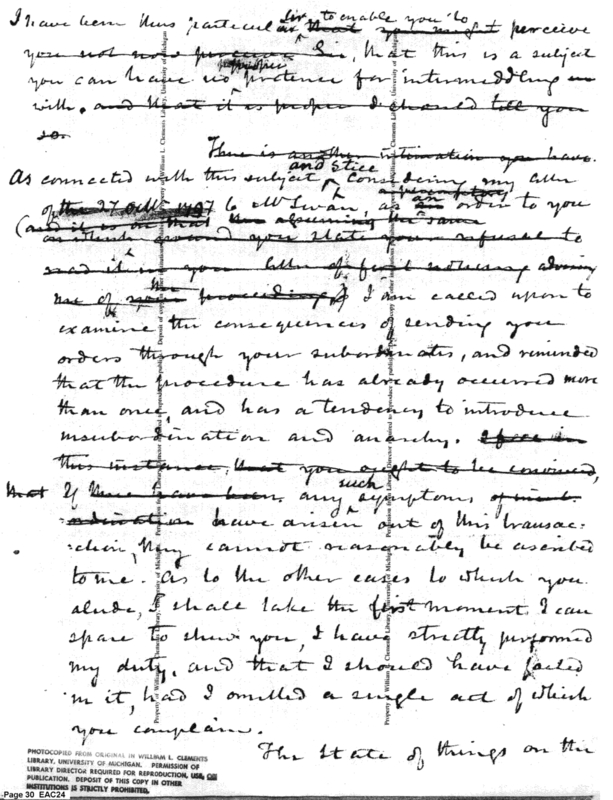 I have been thus particular Sir, to enable you to perceive
you not now perceive Sir, that this is a subject
you can have no proper pretence for intermeddling
with. and that it is proper I should tell you
so.
There is another intimation you have.
As connected with this subject, and still considering my letter
of the 27 Octr. 1797 to Mr Swan, as an order to you
(and it is on that the same
on which ground you state your refusal to
read it in your letter of first advising
me of proceeding) I am called upon to
examine the consequences of sending you
orders through your subordinates, and reminded
that the procedure has already occurred more
than once, and has a tendency to introduce
insubordination and anarchy.
this instance, that you ought to be convinced,
that If there have been any such symptoms of insub-
ordination have arisen out of this transac=
=tion, they cannot reasonably be ascribed
to me. As to the other cases to which you
alude, I shall take the first moment I can
spare to shew you, I have strictly performed
my duty, and that I should have failed
in it, had I omitted a single act of which
you complain.
The State of things on the
PHOTOCOPIED FROM ORIGINAL IN WILLIAM L. CLEMENTS
LIBRARY, UNIVERSITY OF MICHIGAN. PERMISSION OF
LIBRARY DIRECTOR REQUIRED FOR REPRODUCTION, USE, OR
PUBLICATION. DEPOSIT OF THIS COPY IN OTHER
INSTITUTIONS IS STRICTLY PROHIBITED.
-Page 30 EAC24